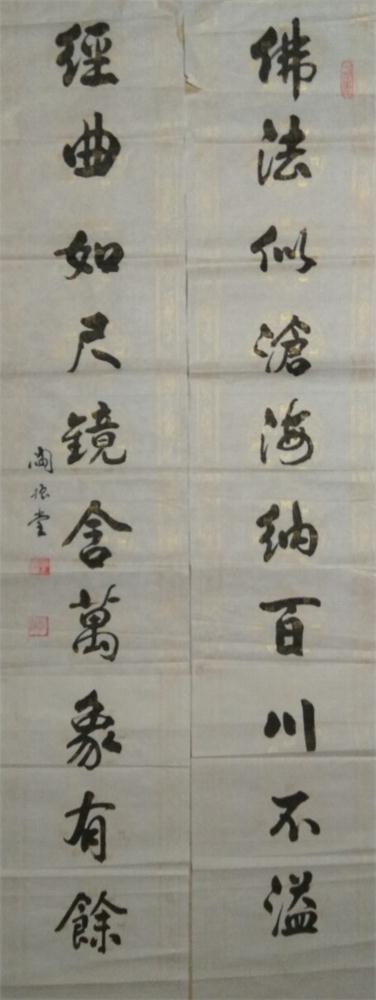 佛法似滄海納百川不溢
經曲如尺鏡含萬象有餘